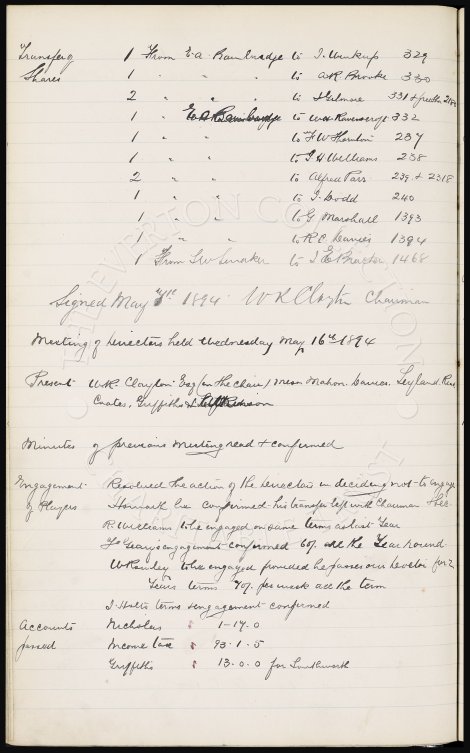 Transferg 1 From E.A. Bainbridge to J. 329
Shares 1 " " to A R Brooke 330
2 " " to J Gilmore 331 +
1 " to W H Ravenscroft 332
1 " " to F W Thornton 237
1 " " to G H Williams 238
2 " " to Alfred Parr 239 + 2318
1 " " to J. Dodd 240
1 " " to G Marshall 1393
1 " " to R C Davies 1394
1 From to J E 1468
Signed May 1894 W R Clayton Chairman
Meeting of Directors held Wednesday May 16th 1894
Present W.R. Clayton Esq (in the chair) Messrs Mahon. Davies. Leyland,
Coates, Griffiths &
Minutes of previous meeting read + confirmed
Engagement Resolved the action of the Directors in deciding not to engage
of Players be confirmed - his transfer left with Chairman + Sec
R Williams to be engaged on same terms as last Year
F Geary's engagement confirmed 60/- all the Year round
to be engaged provided he passes our Doctor for 2
Years terms 70/- per week all the term
J. Holts terms engagement confirmed
Accounts Nicholas 1-17.0
passed Income tax 93.1.5
Griffiths 13.0.0 for Southworth